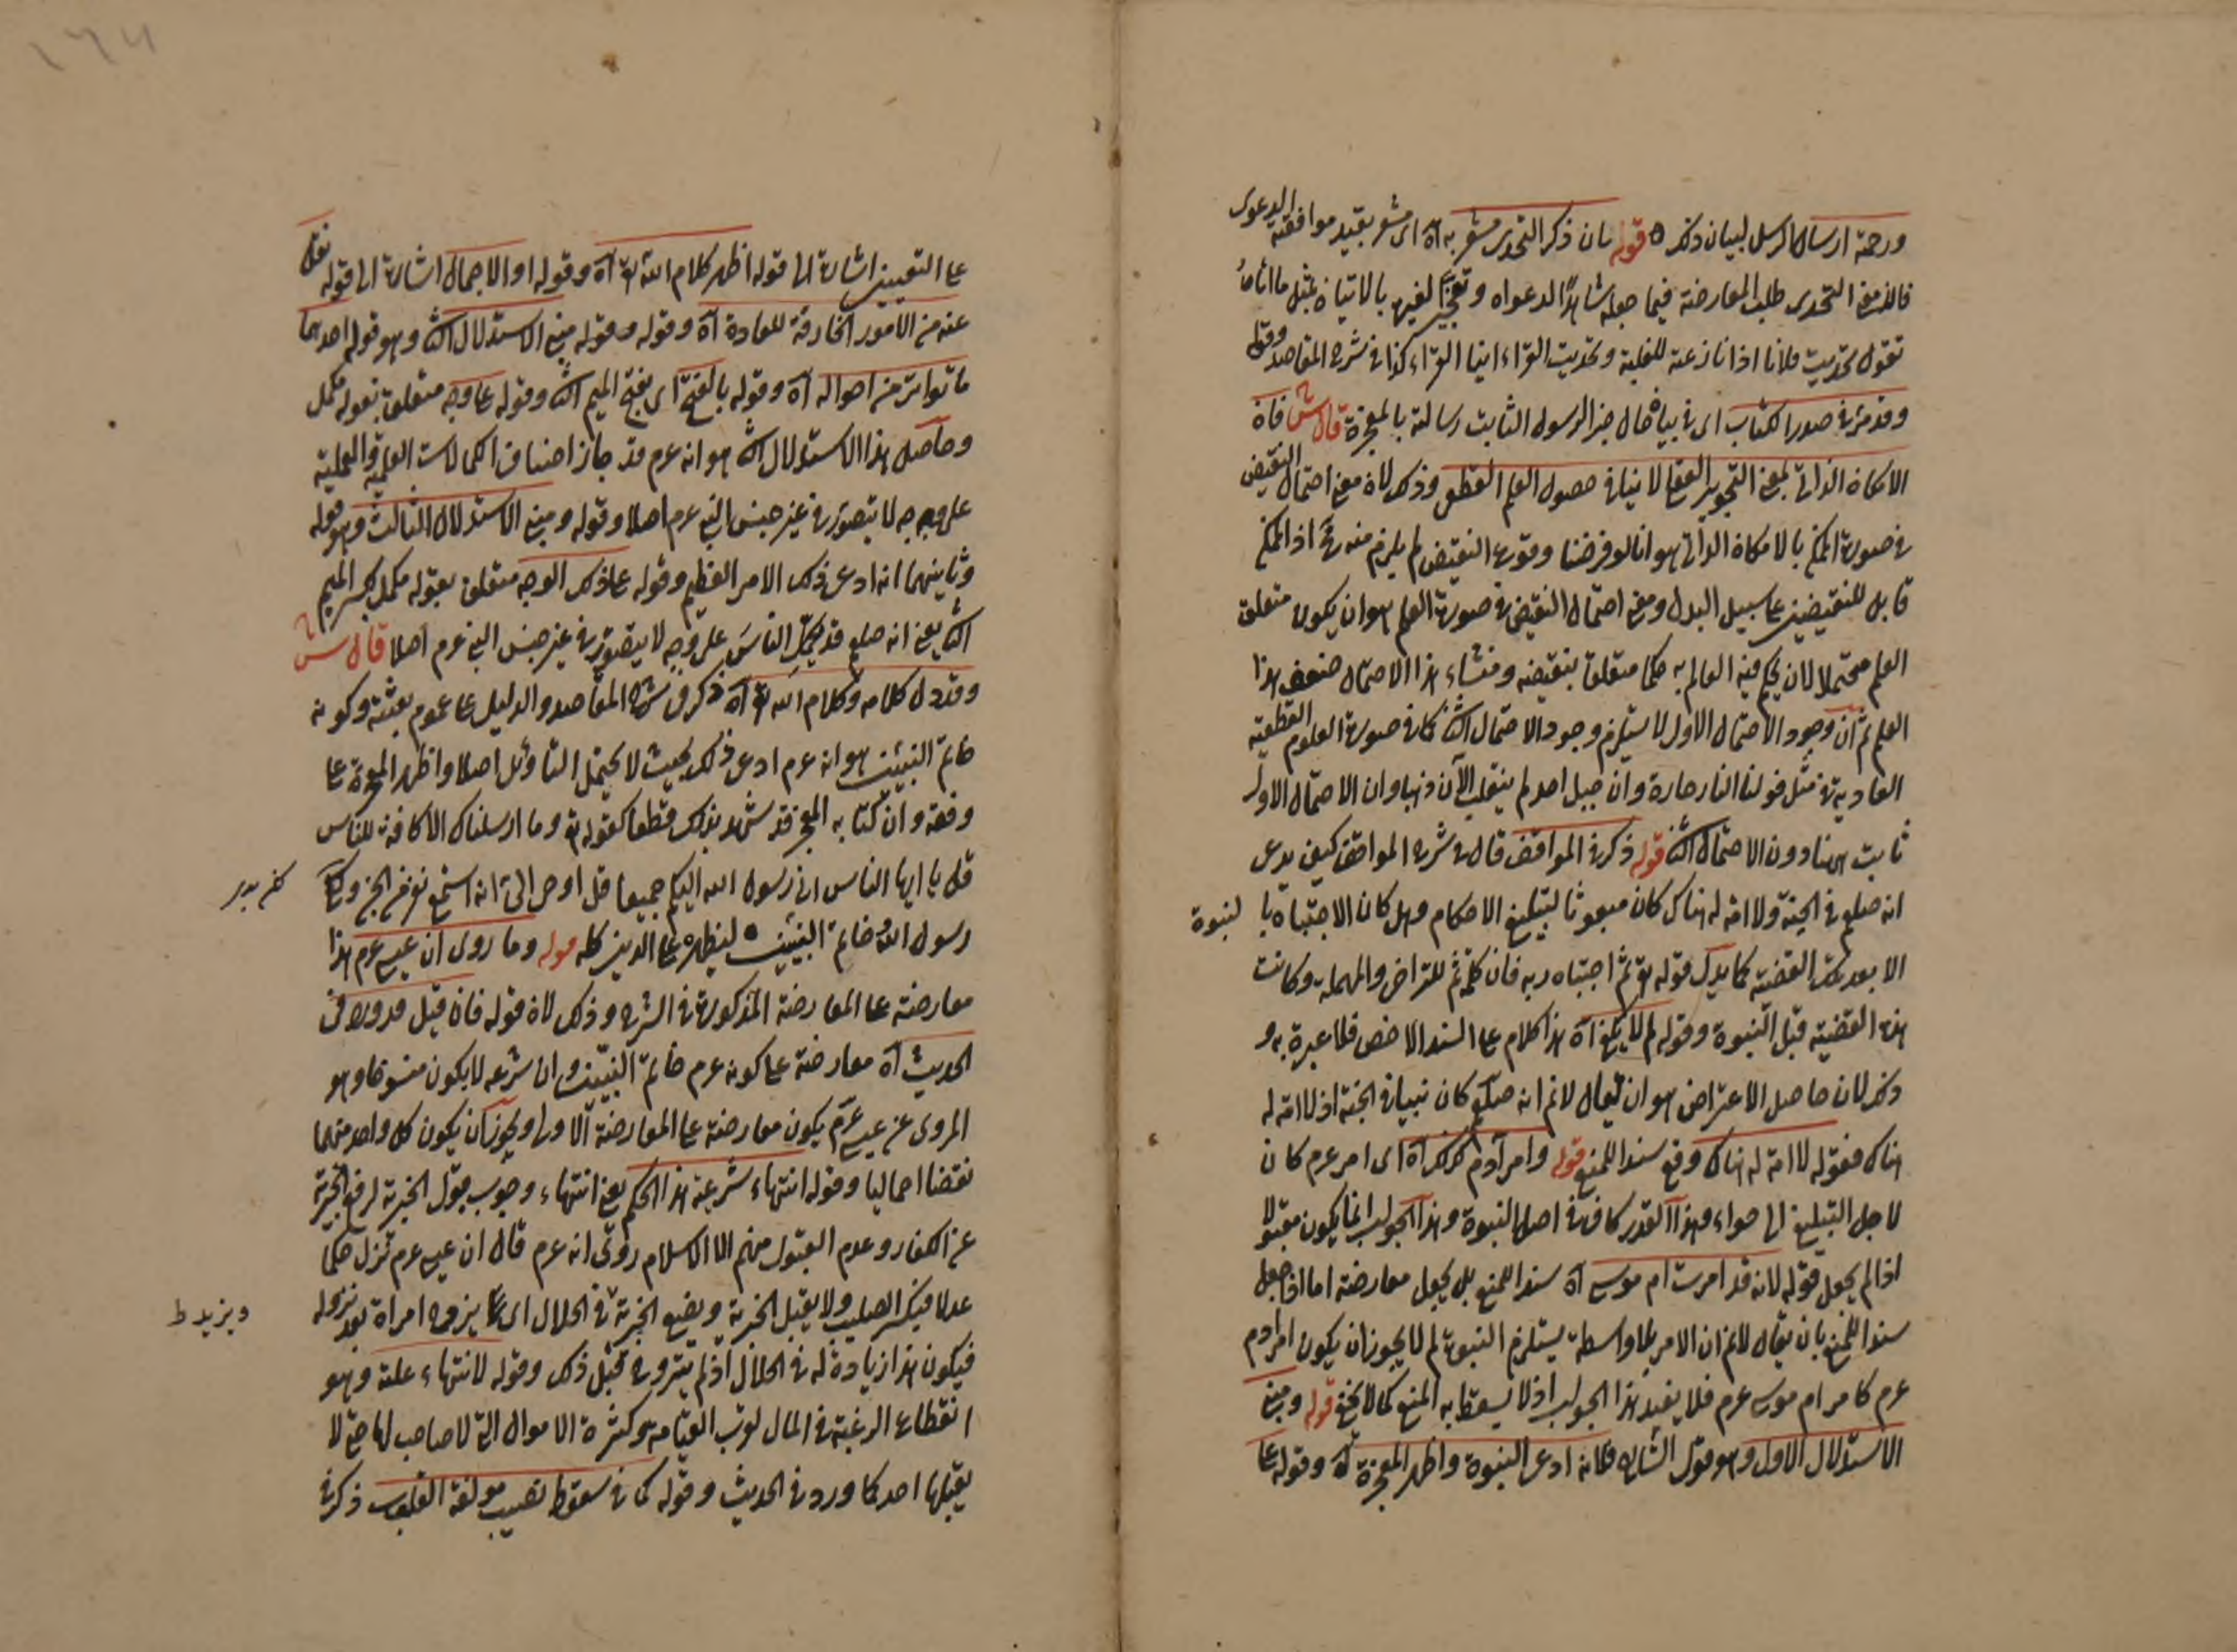 ورحمة ارسال الرسل لبيان ذلك ه قوله بان ذكر التحدى مشعر به آه اى مشعر بقيد موافقة الدعوى
فان معنى التحدى طلب المعارضة فيما جعله شاهدًا لدعواه وتعجيز لغيره بالاتيان بمثل ما أتاه
تقول تحديت فلانا اذا نازعته للغلبة وتحديت القراء اينا اقراء كذا فى شرح المقاصد وقوله
وقد مرّ فى صدر الكتاب اى فى بيان حال خبر الرسول الثابت رسالته بالمعجزة قال ش فان
الامكان الذاتى بمعنى التجويز العقلى لا ينافى حصول العلم القطعى وذلك لان معنى احتمال النقيض
فى صورة الممكن بالامكان الذاتى هو انا لو فرضنا وقوع النقيض لم يلزم منه مح اذ الممكن
قابل للنقيضين على سبيل البدل ومعنى احتمال النقيض فى صورة العلم هو ان يكون متعلق
العلم محتملا لان يحكم فيه العالم به حكما متعلقا بنقيضه ومنشاء هذا الاحتمال ضعف هذا
العلم ثم ان وجود الاحتمال الاول لا يستلزم وجود الاحتمال الثانى كما فى صورة العلوم القطعية
العادية فى مثل قولنا النار حارة وان جبل احد لم ينقلب الآن ذهبا وان الاحتمال الاول
ثابت ههنا دون الاحتمال الثانى قوله ذكر فى المواقف قال فى شرح المواقف كيف يدعى
انه صلعم فى الجنة ولا امة له هناك كان مبعوثا لتبليغ الاحكام وهل كان الاجتباه با لنبوة
الا بعد تلك القضية كما يدل قوله تع ثم اجتباه ربه فان كلمة ثم للتراخى والمهملة وكانت
هذه القضية قبل النبوة وقوله لم لا يكفى آه هذا كلام على السند الاخص فلا عبرة به و
ذلك لان حاصل الاعتراض هو ان يقال لا نم انه صلعم كان نبيا فى الجنة اذ لا امة له
هناك فقوله لا امة له هناك وقع سندا للمنع قوله وامر آدم كذلك آه اى امر عرم كان
لاجل التبليغ الى حواء وهذا القدر كاف فى اصل النبوة وهذا الجواب انما يكون مقبولا
اذا لم يجعل قوله لانه قد امرت ام موسى آه سندا للمنع بل يجعل معارضة اما اذا جعل
سندا للمنع بان يقال لا نم ان الامر بلا واسطة يستلزم النبوة لم لا يجوز ان يكون امر ادم
عرم كامر ام موسى عرم فلا يفيد هذا الجواب اذ لا يسقط به المنع كما لا يخفى قوله ومبنى
الاستدلال الاول وهو قول الشارح فلانه ادعى النبوة واظهر المعجزة آه وقوله على
على التعيين اشارة الى قوله اظهر كلام الله تع آه وقوله او الاجمال اشارة الى قوله نقل
عنه من الامور الخارقة للعادة آه وقوله وقوله مبنى الاستدلال الثانى وهو قوله احدهما
ما تواتر من احواله آه وقوله بالفتح اى بفتح الميم الثانى وقوله على وجه متعلق بقوله مكمل
وحاصل هذا الاستدلال الثانى هو انه عرم قد جاز اصناف الكمالات العلمية والعملية
على وجه لا يتصور فى غير جنس النبى عرم اصلا وقوله ومبنى الاستدلال الثالث وهو قوله
وثانيهما انه ادعى ذلك الامر العظيم وقوله على ذلك الوجه متعلق بقوله مكمل بكسر الميم
الثانى يعنى انه صلعم قد يكمل الناس على وجه لا يتصور فى غير جنس النبى عرم اصلا قال ش
وقد دل كلامه وكلام الله تع آه ذكر فى شرح المقاصد والدليل على عموم بعثته وكونه
خاتم النبيين هو انه عرم ادعى ذلك بحيث لا يحتمل التأويل اصلا واظهر المعجزة على
وفقه وان كتابه المعجز قد شهد بذلك قطعا كقوله تع وما ارسلناك الا كافة للناس
قل يا ايها الناس انى رسول الله اليكم جميعا قل اوحى الىّ انه استمع نفر من الجن ولكن
رسول الله وخاتم النبيين ه ليظهره على الدين كله قوله وما روى ان عيسى عرم هذا
معارضة على المعارضة المذكورة فى الشرح وذلك لان قوله فان قيل قد ورد فى
الحديث آه معارضة على كونه عرم خاتم النبيين وان شرعه لا يكون منسوخا وهو
المروى عن عيسى عرم يكون معارضة على المعارضة الاولى ويجوز ان يكون كل واحد منهما
نقضا اجماليا وقوله انتهاء شرعية هذا الحكم يعنى انتهاء وجوب قبول الجزية لرفع الجزية
عن الكفار وعدم القبول منهم الا الاسلام روى انه عرم قال ان عيسى عرم تنزل حكما
عدلا فيكسر الصليب ولا يقبل الجزية ويضع الجزية فى الحلال اى يزوج امراة بعد نزوله
ويزيد ط
فيكون هذا زيادة له فى الحلال اذ لم يتزوج قبل ذلك وقوله لانتهاء علته وهو
انقطاع الرغبة فى المال لقرب القيامة وكثرة الاموال التى لا صاحب لها حتى لا
يقبلها احد كما ورد فى الحديث وقوله كما فى سقوط نصيب مولفة القلوب ذكر فى